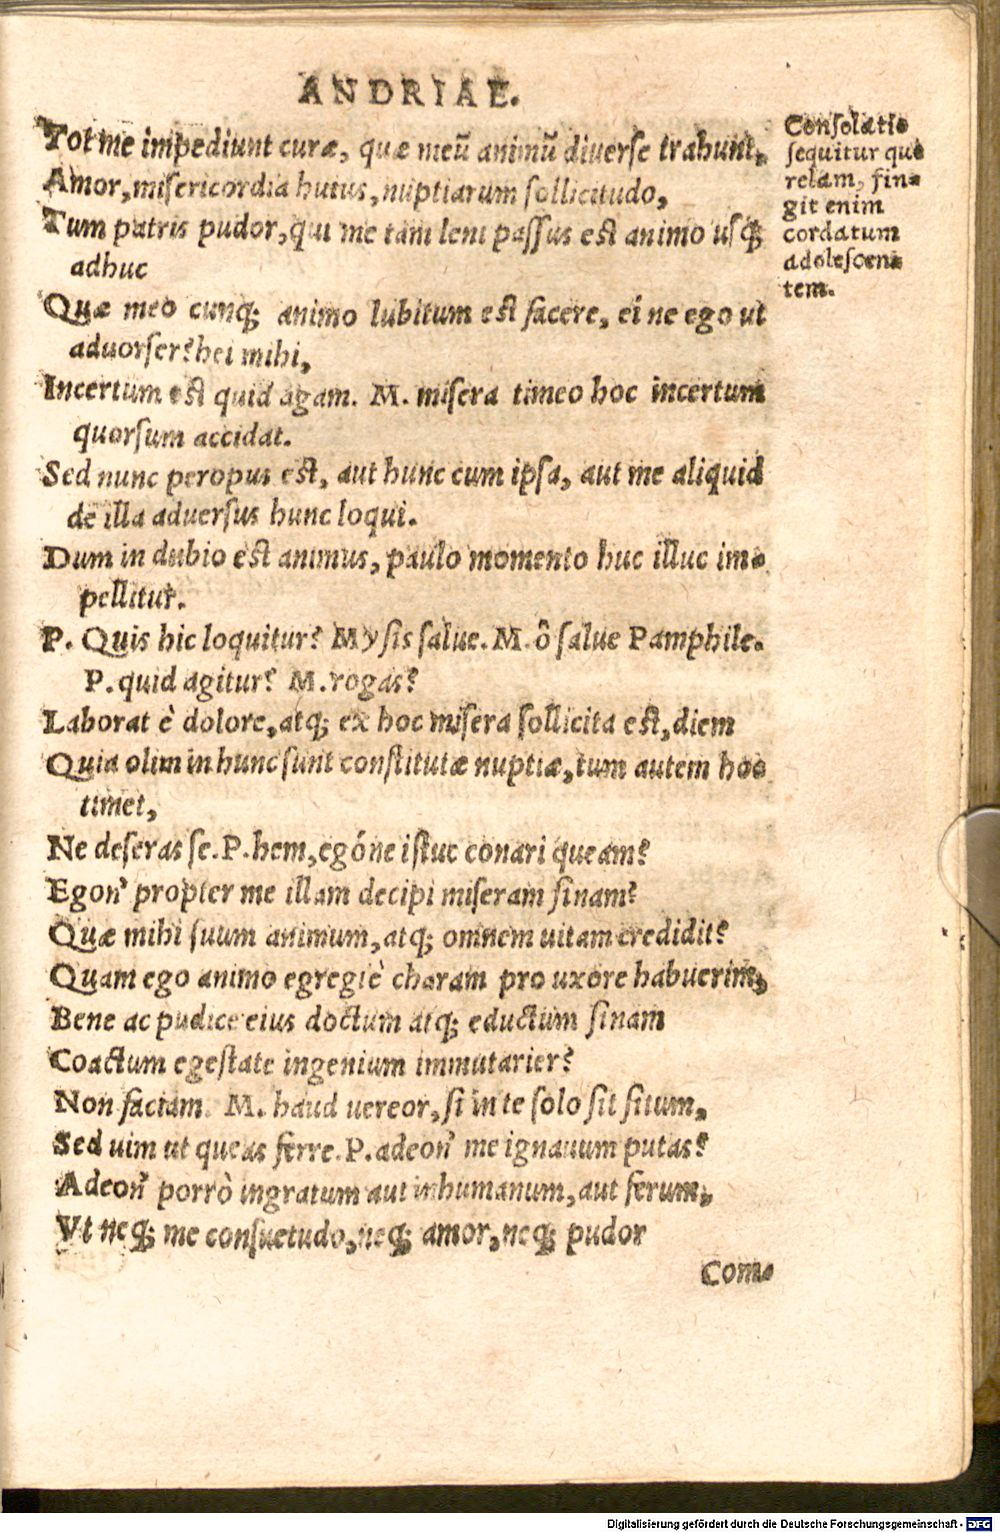 ANDRIAE.
Tot me impediunt curæ, quæ meũ animũ diuerse trahunt,
Amor, misericordia huius, nuptiarum sollicitudo,
Tum patris pudor, qui me tam leni passus est animo usq;
adhuc
Quæ meo cunq; animo lubitum est facere, ei ne ego ut
aduorser? hei mihi,
Incertum est quid agam. M. misera timeo hoc incertum
quorsum accidat.
Sed nunc peropus est, aut hunc cum ipsa, aut me aliquid
de illa aduersus hunc loqui.
Dum in dubio est animus, paulo momento huc illuc im-
pellitur.
P. Quis hic loquitur? Mysis salue. M. ô salue Pamphile.
P. quid agitur? M. rogas?
Laborat è dolore, atq; ex hoc misera sollicita est, diem
Quia olim in hunc sunt constitutæ nuptiæ, tum autem hoc
timet,
Ne deseras se. P. hem, egóne istuc conari queam?
Egon' propter me illam decipi miseram sinam?
Quæ mihi suum animum, atq; omnem uitam credidit?
Quam ego animo egregiè charam pro uxore habuerim,
Bene ac pudice eius doctum atq; eductum sinam
Coactum egestate ingenium immutarier?
Non faciam. M. haud uereor, si in te solo sit situm,
Sed uim ut queas ferre. P. adeon' me ignauum putas?
Adeon' porrò ingratum aut inhumanum, aut ferum,
Vt neq; me consuetudo, neq; amor, neq; pudor
Com-
Consolatio
sequitur que
relam, fin-
git enim
cordatum
adolescen-
tem.
Digitalisierung gefördert durch die Deutsche Forschungsgemeinschaft - DFG